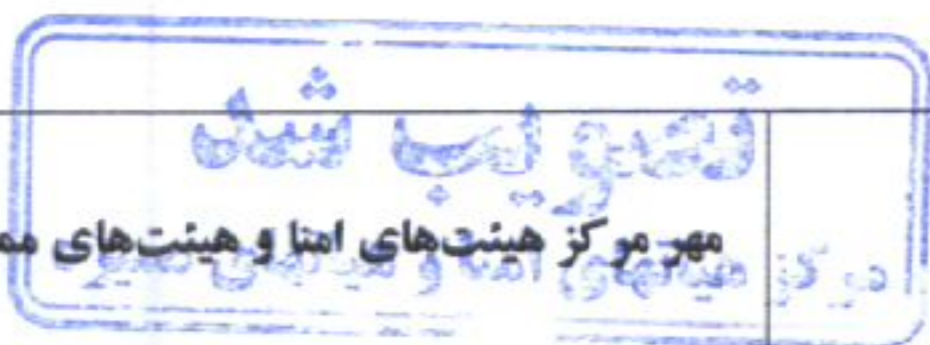 تصویب شد
مهر مرکز هیئت‌های امنا و هیئت‌های
مرکز هیئتهای امنا و هیئتهای ممیزه